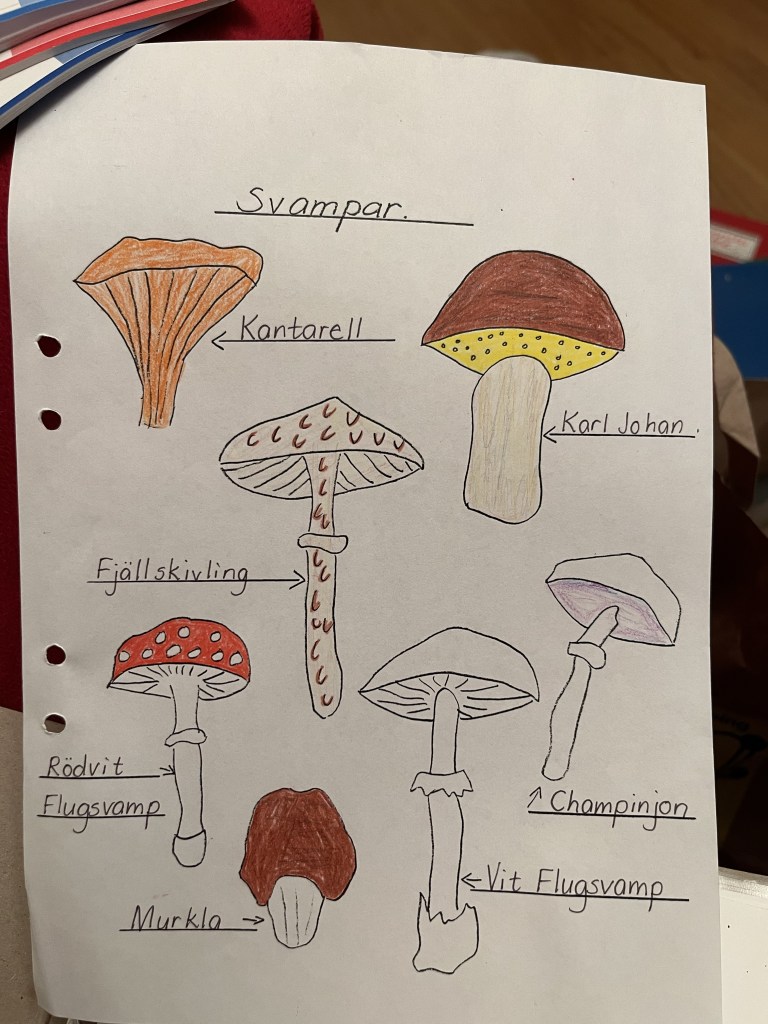 Svampar.
Kantarell
Karl Johan.
Fjällskivling
Rödvit
Flugsvamp
Champinjon
Vit Flugsvamp
Murkla